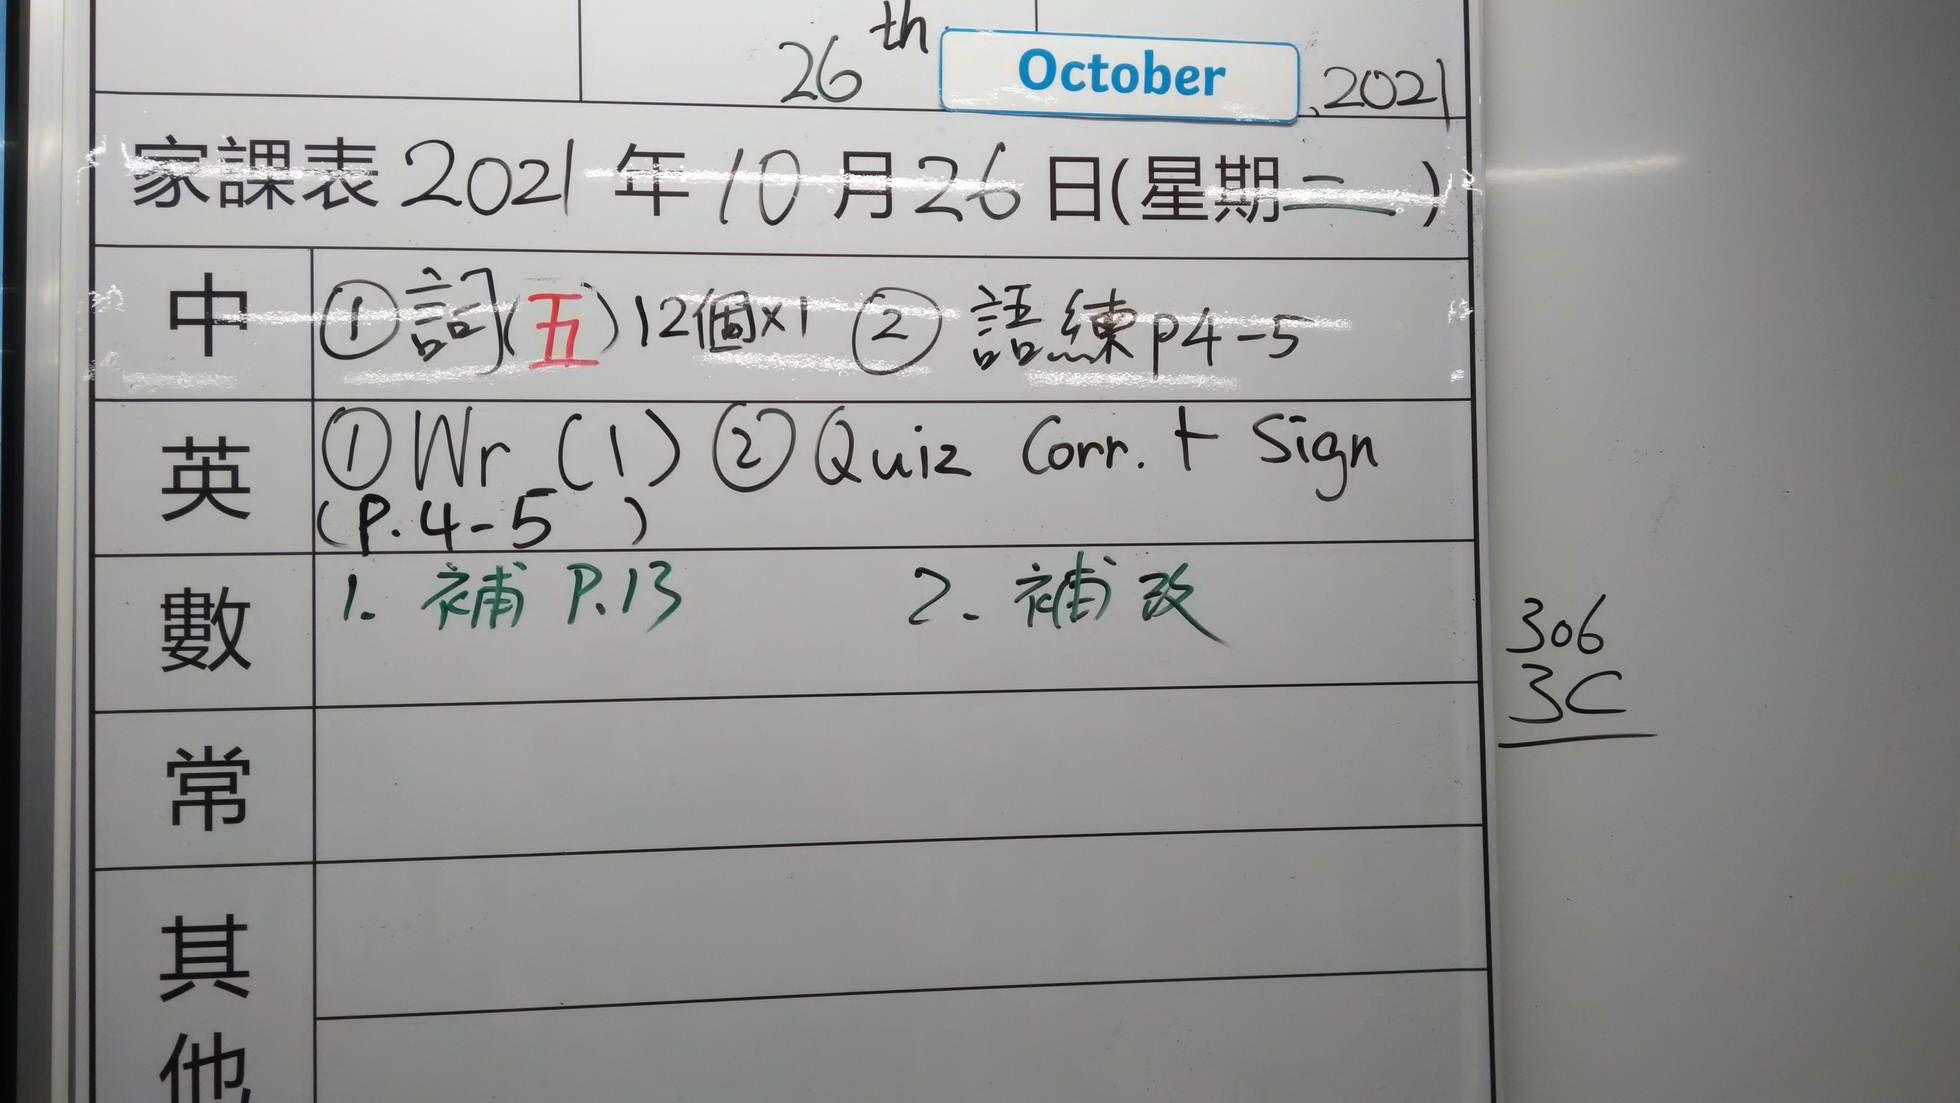 26th October, 2021
家課表 2021 年 10 月 26 日(星期二)
中 ① 詞(五)12個×1 ② 語練 p4-5
英 ① Wr (1) ② Quiz Corr. + Sign
(P.4-5 )
數 1. 補 P.13 2. 補改
306
3C
常
其
他